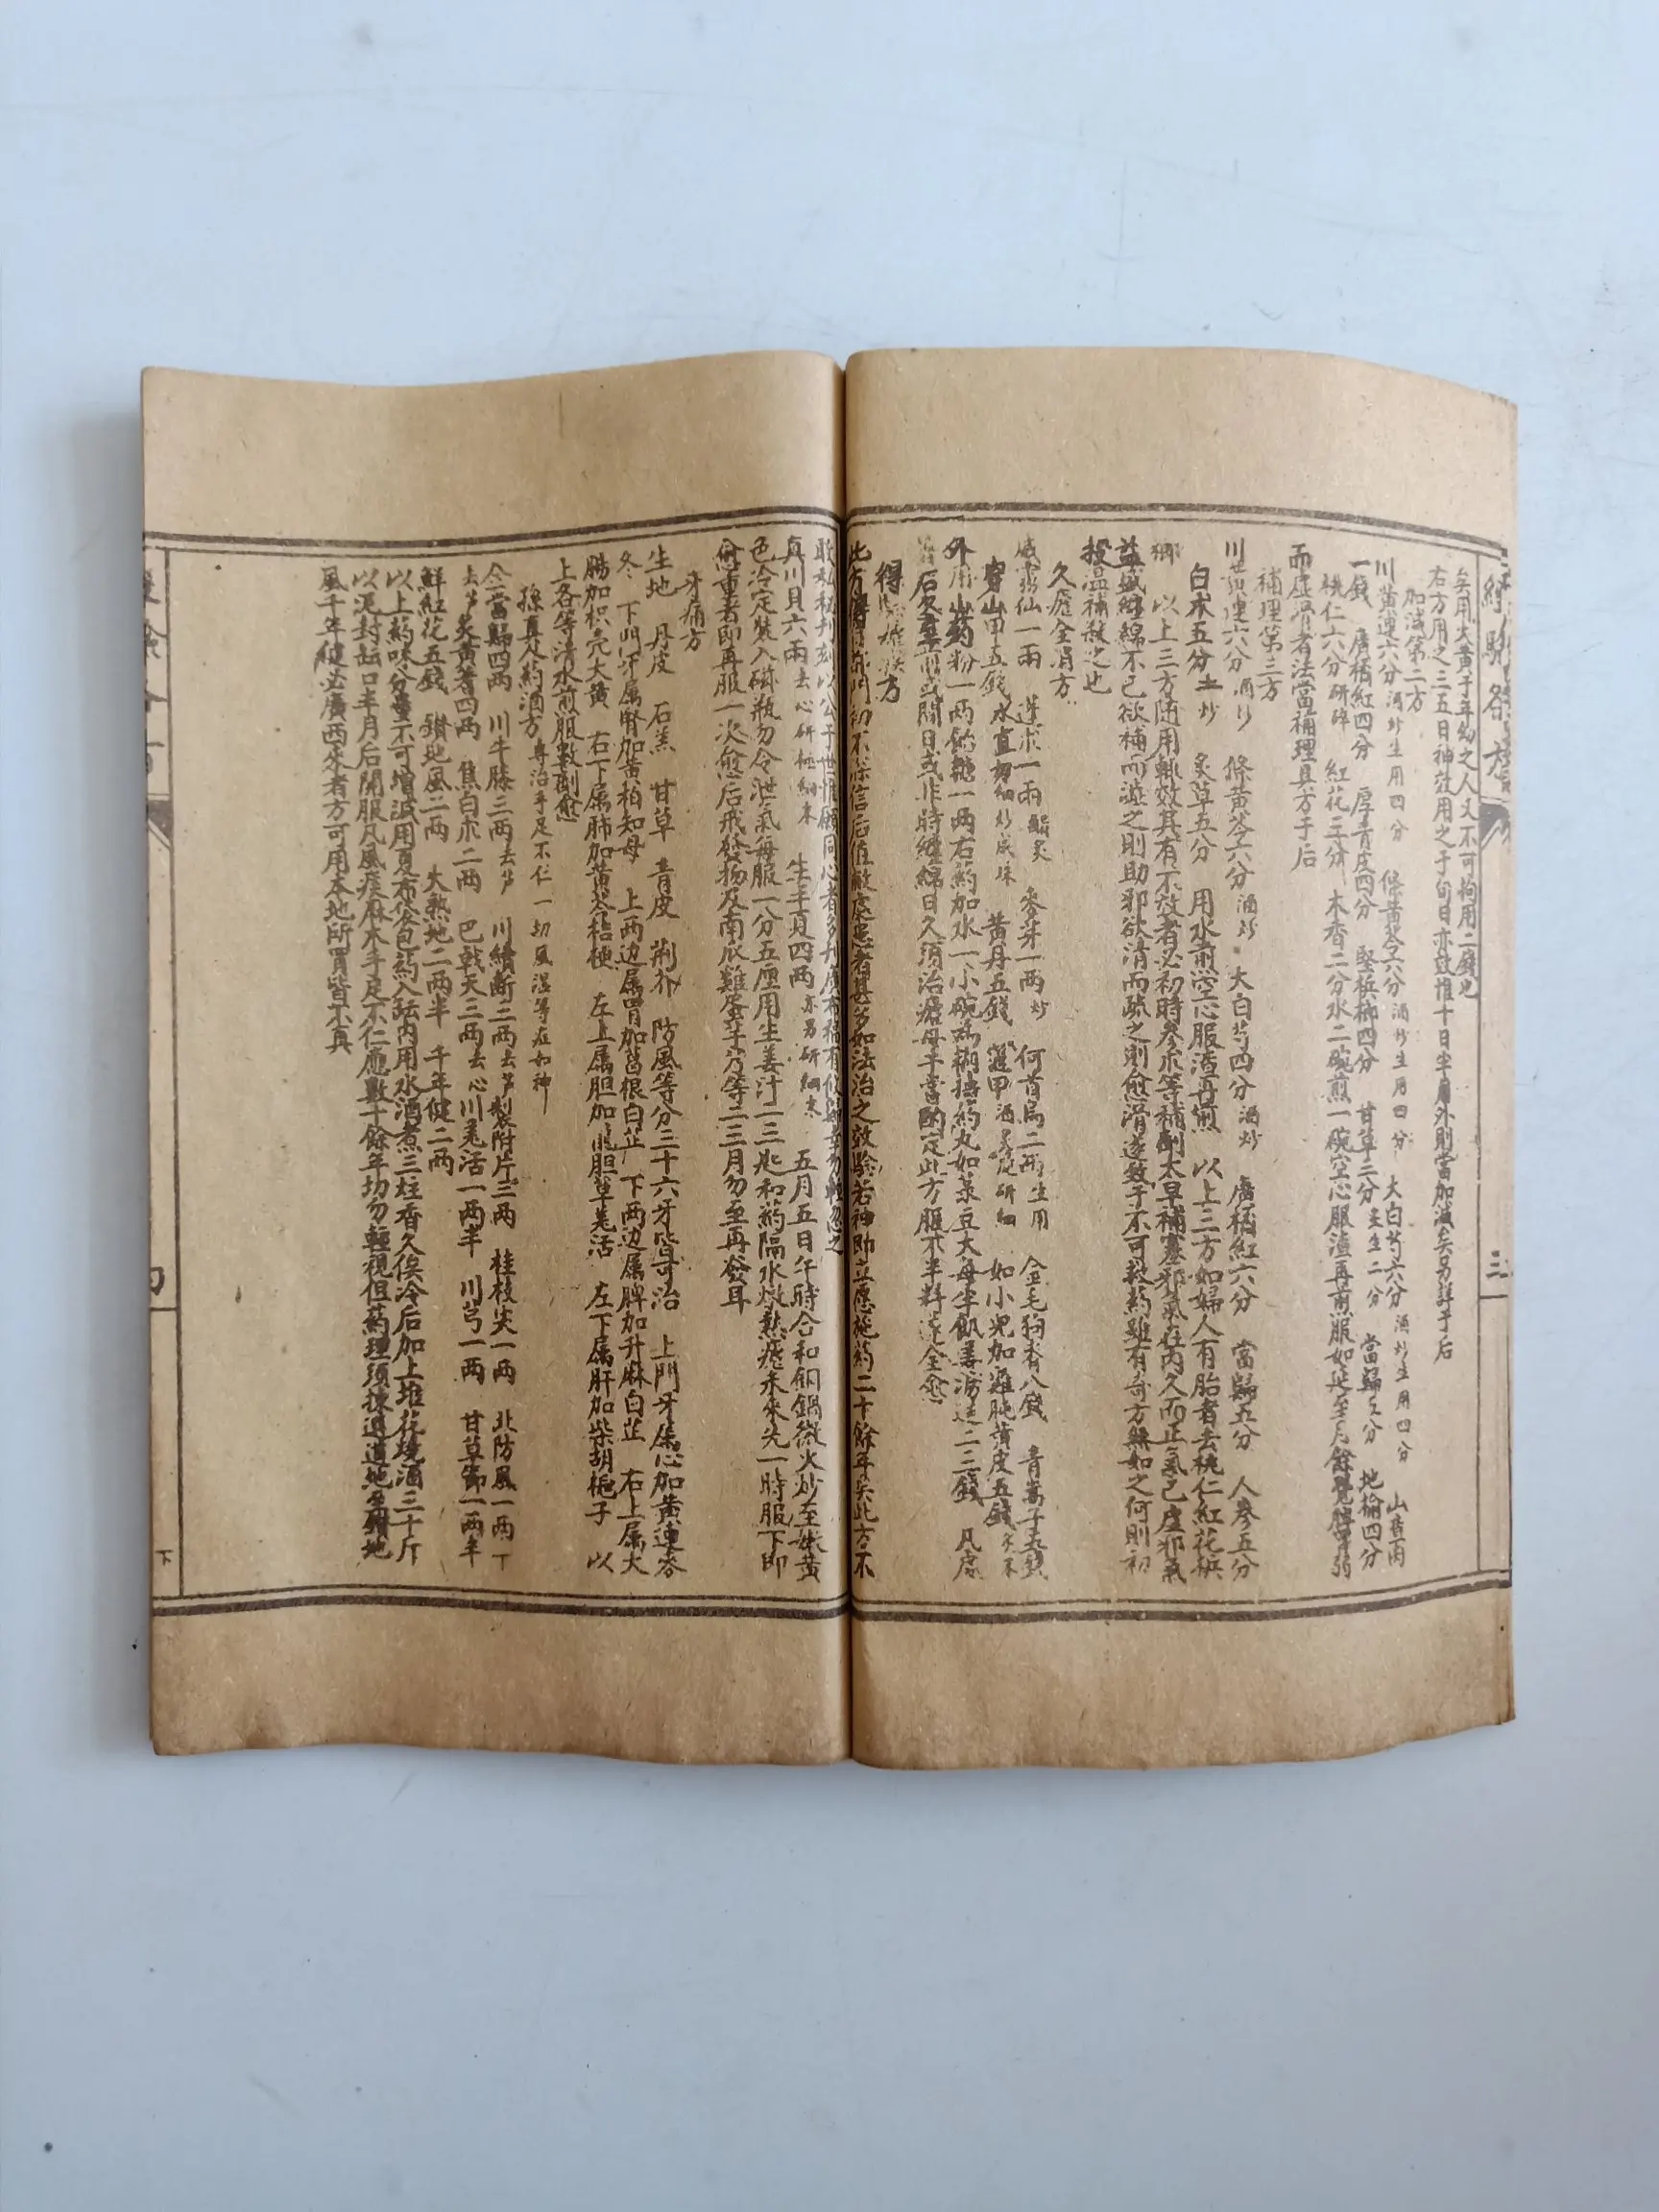 經驗各方
三
矣用大黃于年幼之人又不可拘用二錢也
右方用之三五日神效用之于旬日亦效惟十日半月外則當加減矣另詳于后
加減第二方
川黃連六分酒炒生用四分 條黃芩六分酒炒生用四分 大白芍六分酒炒生用四分 山查肉
一錢 廣橘紅四分 厚青皮四分 堅梹榔四分 甘草三分 生二分 當歸五分 地榆四分
桃仁六分研碎 紅花三分 木香二分水二碗煎一碗空心服渣再煎服如延至月餘覺脾胃弱
而虛滑者法當補理其方于后
補理第三方
川黃連六分酒炒 條黃芩六分酒炒 大白芍四分酒炒 廣橘紅六分 當歸五分 人參五分
白朮五分土炒 炙草五分 用水煎空心服渣再煎 以上三方如婦人有胎者去桃仁紅花梹
榔 以上三方隨用輒效其有不效者必初時參朮等補劑太早補塞邪氣在內久而正氣已虛邪氣
益盛纏綿不已欲補而澁之則助邪欲清而疏之則愈滑遂致于不可救藥雖有奇方無如之何則初
投溫補殺之也
久瘧全消方
威靈仙一兩 蓬朮一兩醋炙 麥芽一兩炒 何首烏二兩生用 金毛狗脊八錢 青蒿子五錢
穿山甲五錢水直切細炒成珠 黃丹五錢 鱉甲酒炙研細 如小兒加雞肫黃皮五錢
外用山藥粉一兩飴糖一兩右葯加水一小碗為糊搗葯丸如菉豆大每半飢姜湯送二三錢 凡瘧
久或間日或非時纏綿日久須治瘧母手當酌定此方服不半料遂全愈
此方初不深信后值敝處患者甚多如法治之效驗若神即立愿施葯二十餘年矣此方不
敢私秘刊刻以公于世惟願同心者多刋廣布稿有
真川貝六兩去心研極細末 生半夏四兩亦另研細末 五月五日午時合和銅鍋微火炒至嫩黃
色冷定裝入磁瓶勿令泄氣每服一分五厘用生姜汁二三匙和葯隔水燉熱瘧未來先一時服下即
愈重者即再服一次愈后戒發物及南瓜雞蛋芋艿等二三月勿至再發耳
牙痛方
生地 丹皮 石羔 甘草 青皮 荊芥 防風等分三十六牙皆可治 上門牙属心加黃連麥
冬 下門牙属腎加黃柏知母 上两边属胃加葛根白芷 下两边属脾加升麻白芷 右上属大
腸加枳壳大黃 右下属肺加黃芩桔梗 左上属胆加龍胆草羌活 左下属肝加柴胡梔子 以
上各等清水煎服數劑愈
孫真人葯酒方專治手足不仁一切風濕等症如神
全當歸四两 川牛膝三两去芦 川續斷二两去芦製附片三两 桂枝尖一两 北防風一两丁
去芦炙黃耆四两 焦白朮二两 巴戟天三两去心川羌活一两半 川芎一两 甘草節一两半
鮮紅花五錢 鑽地風二两 大熟地二两半 千年健二两
以上葯味分量不可增減用夏布袋包葯入缸內用水酒煮三炷香久俟冷后加上堆花燒酒三十斤
以泥封缸口半月后開服凡風痰麻木手足不仁應數十餘年切勿輕視但葯理須揀選道地至鑽地
風千年健必廣西來者方可用本地所買皆不真
下